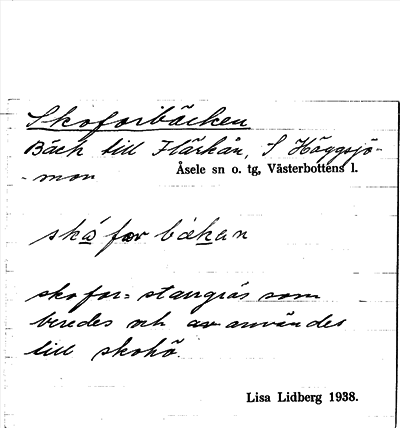 Skoforbäcken
Bäck till Flärkån, S Häggsjö-
-mon
Åsele sn o. tg, Västerbottens l.
skå for bäkan
skofor = starrgräs som
beredes och användes
till skohö.
Lisa Lidberg 1938.